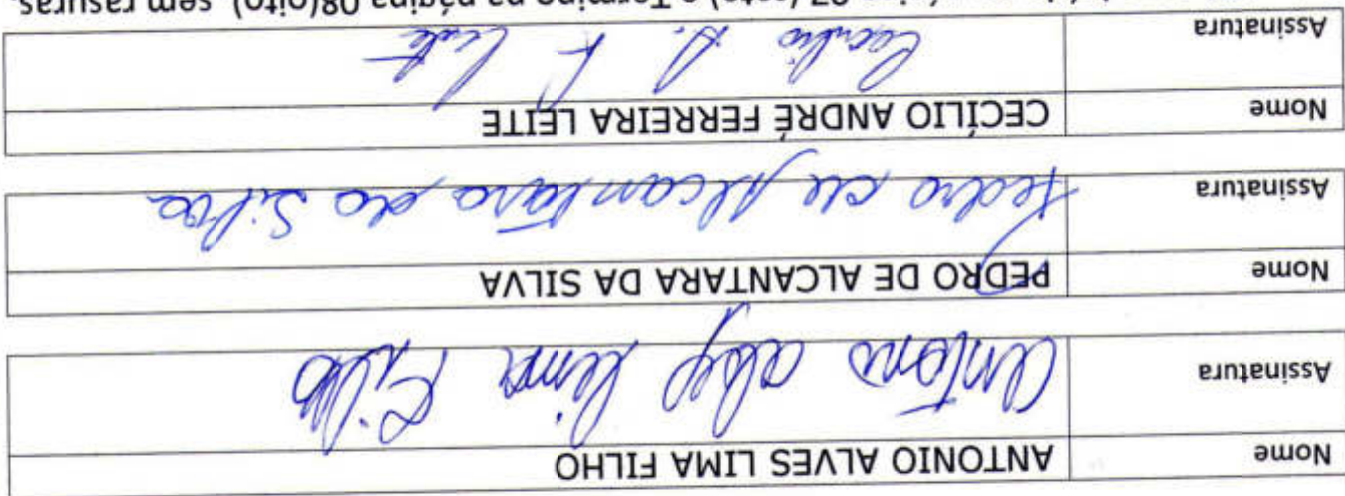 Nome ANTONIO ALVES LIMA FILHO
Assinatura Antonio alves Lima Filho
Nome PEDRO DE ALCANTARA DA SILVA
Assinatura Pedro de Alcantara da Silva
Nome CECÍLIO ANDRÉ FERREIRA LEITE
Assinatura Cecilio A. F Leite
página 07 (sete) e Termino na página 08(oito), sem rasuras.